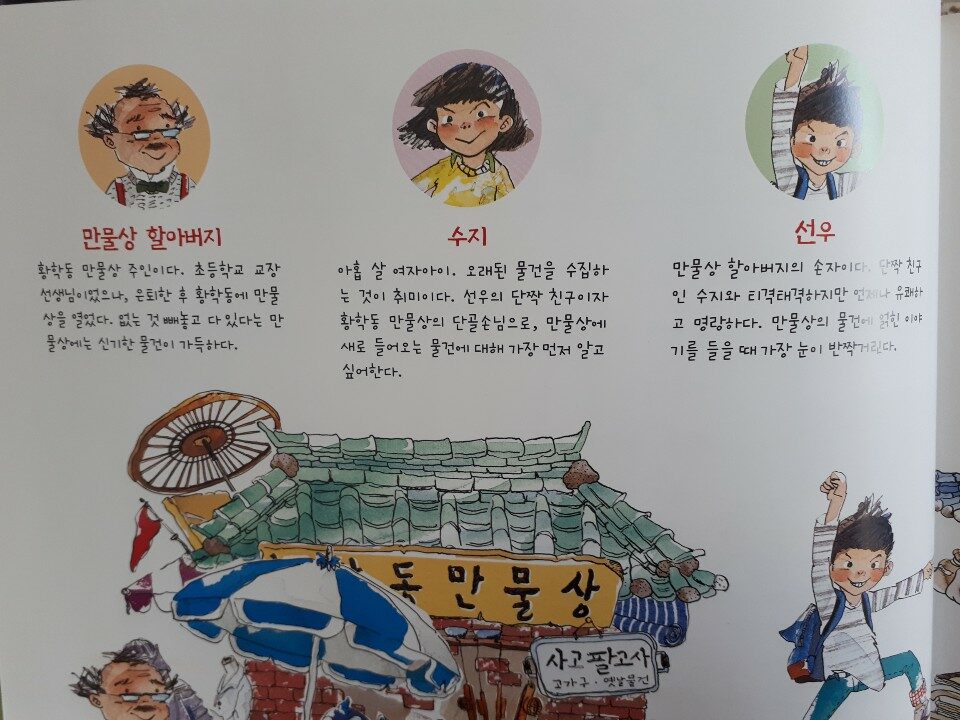 만물상 할아버지
황학동 만물상 주인이다. 초등학교 교장
선생님이었으나, 은퇴한 후 황학동에 만물
상을 열었다. 없는 것 빼놓고 다 있다는 만
물상에는 신기한 물건이 가득하다.
수지
아홉 살 여자아이. 오래된 물건을 수집하
는 것이 취미이다. 선우의 단짝 친구이자
황학동 만물상의 단골손님으로, 만물상에
새로 들어오는 물건에 대해 가장 먼저 알고
싶어한다.
선우
만물상 할아버지의 손자이다. 단짝 친구
인 수지와 티격태격하지만 언제나 유쾌하
고 명랑하다. 만물상의 물건에 얽힌 이야
기를 들을 때 가장 눈이 반짝거린다.
동만물상
사고팔고사
고가구·옛날물건